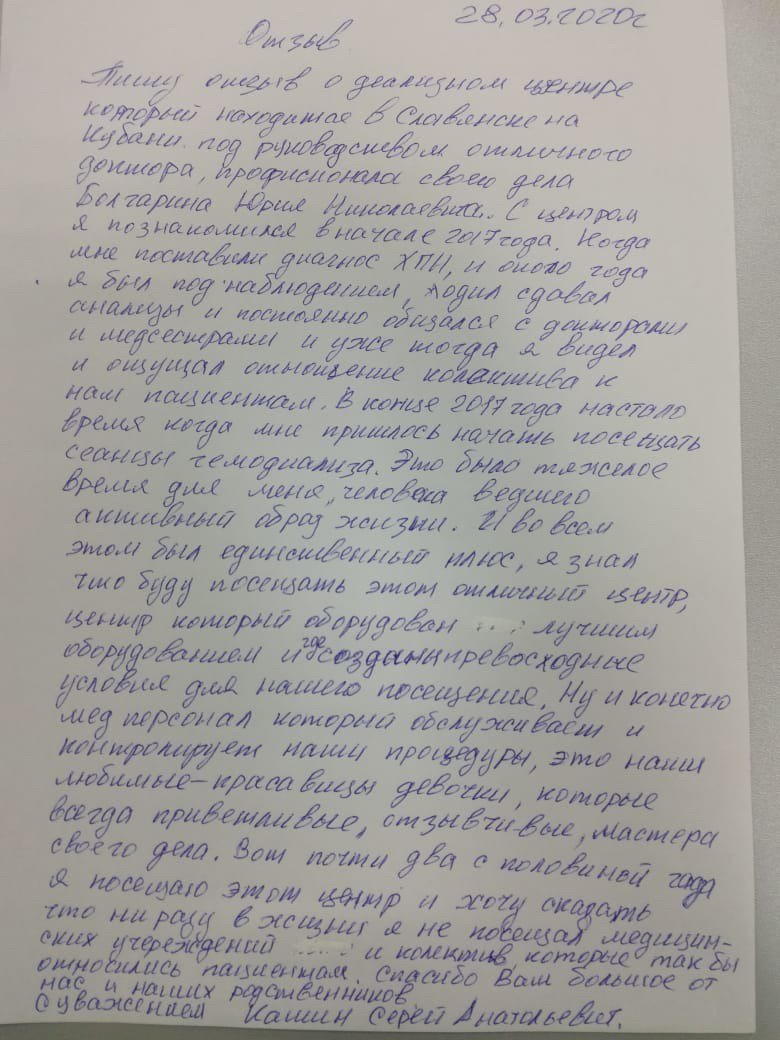 28.03.2020г
Отзыв
Пишу отзыв о диализном центре
который находится в Славянске на
Кубани. под руководством отличного
доктора, професионала своего дела
Болгарина Юрия Николаевича. С центром
я познакомился в начале 2017 года. Когда
мне поставили диагноз ХПН, и около года
я был под наблюдением, ходил сдавал
анализы и постоянно общался с докторами
и медсестрами и уже тогда я видел
и ощущал отношение колактива к
нам пациентам. В конце 2017 года настало
время когда мне пришлось начать посещать
сеанцы гемодиализа. Это было тяжелое
время для меня, человека ведшего
активный образ жизни. И во всем
этом был единственный плюс, я знал
что буду посещать этот отличный центр,
центр который оборудован лучшим
оборудованием и где созданы превосходные
условия для нашего посещения. Ну и конечно
мед персонал который обслуживает и
контролирует наши процедуры, это наши
любимые-красавицы девочки, которые
всегда приветливые, отзывчивые, мастера
своего дела. Вот почти два с половиной года
я посещаю этот центр и хочу сказать
что ни разу в жизни я не посещал медицин-
ских учереждений и колектив которые так бы
относились пациентам. Спасибо Вам большое от
нас и наших родственников.
С уважением Камин Серей Анатольевич.